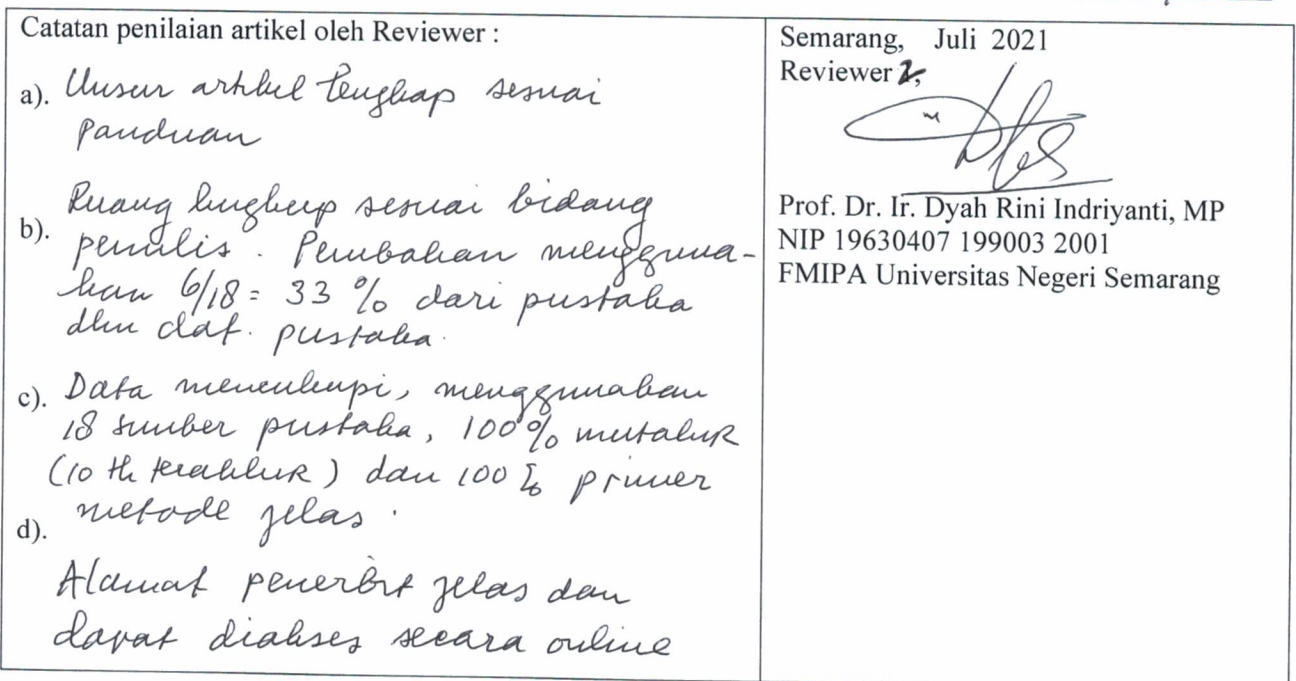 Catatan penilaian artikel oleh Reviewer :
a). Unsur artikel lengkap sesuai
panduan
b). Ruang lingkup sesuai bidang
penulis. Pembahan mengguna-
kan 6/18 = 33 % dari pustaka
dlm daf. pustaka.
c). Data mencukupi, menggunakan
18 sumber pustaka, 100% mutakhir
(10 th terakhir) dan 100% primer
metode jelas.
d).
Alamat penerbit jelas dan
dapat diakses secara online
Semarang, Juli 2021
Reviewer 2,
Prof. Dr. Ir. Dyah Rini Indriyanti, MP
NIP 19630407 199003 2001
FMIPA Universitas Negeri Semarang